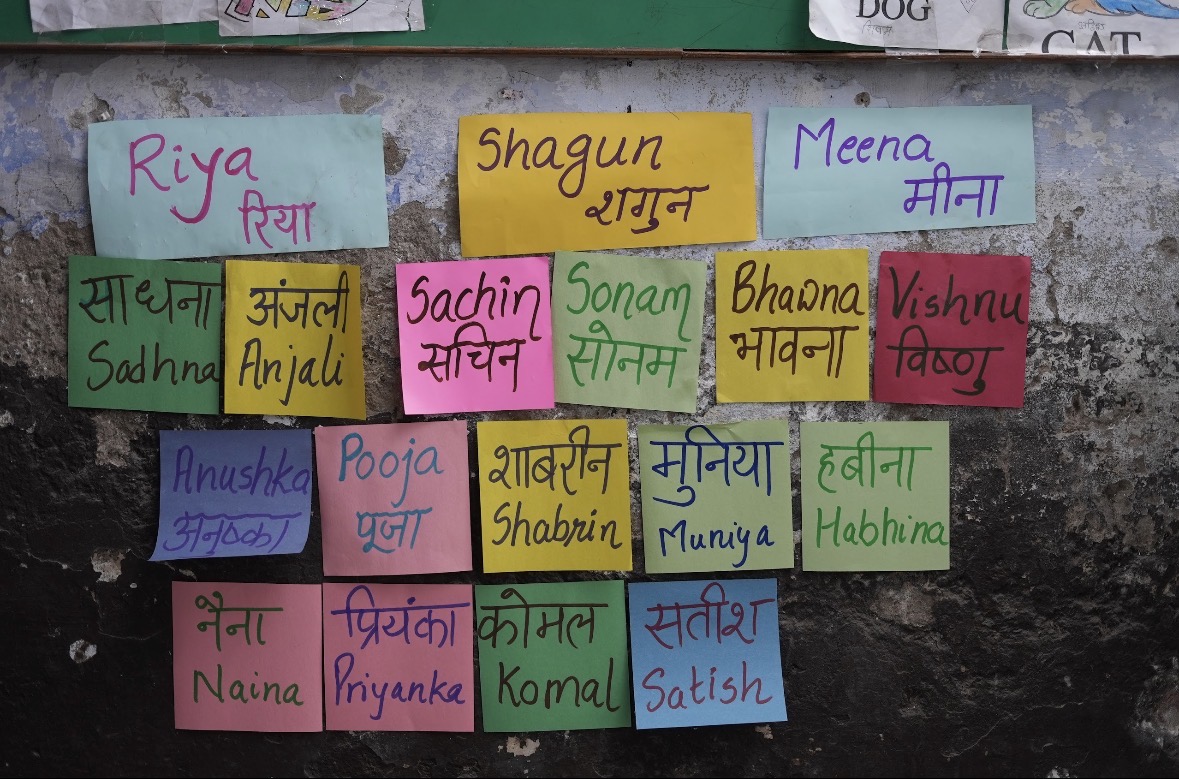 DOG
CAT
Riya
रिया
Shagun
शगुन
Meena
मीना
साधना
Sadhna
अंजली
Anjali
Sachin
सचिन
Sonam
सोनम
Bhawna
भावना
Vishnu
विष्णु
Anushka
अनुष्का
Pooja
पूजा
शाबरीन
Shabrin
मुनिया
Muniya
हबीना
Habhina
नैना
Naina
प्रियंका
Priyanka
कोमल
Komal
सतीश
Satish